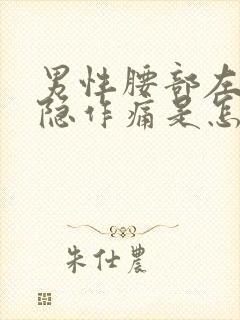 男性腰部左
隐作痛是怎
朱仕農